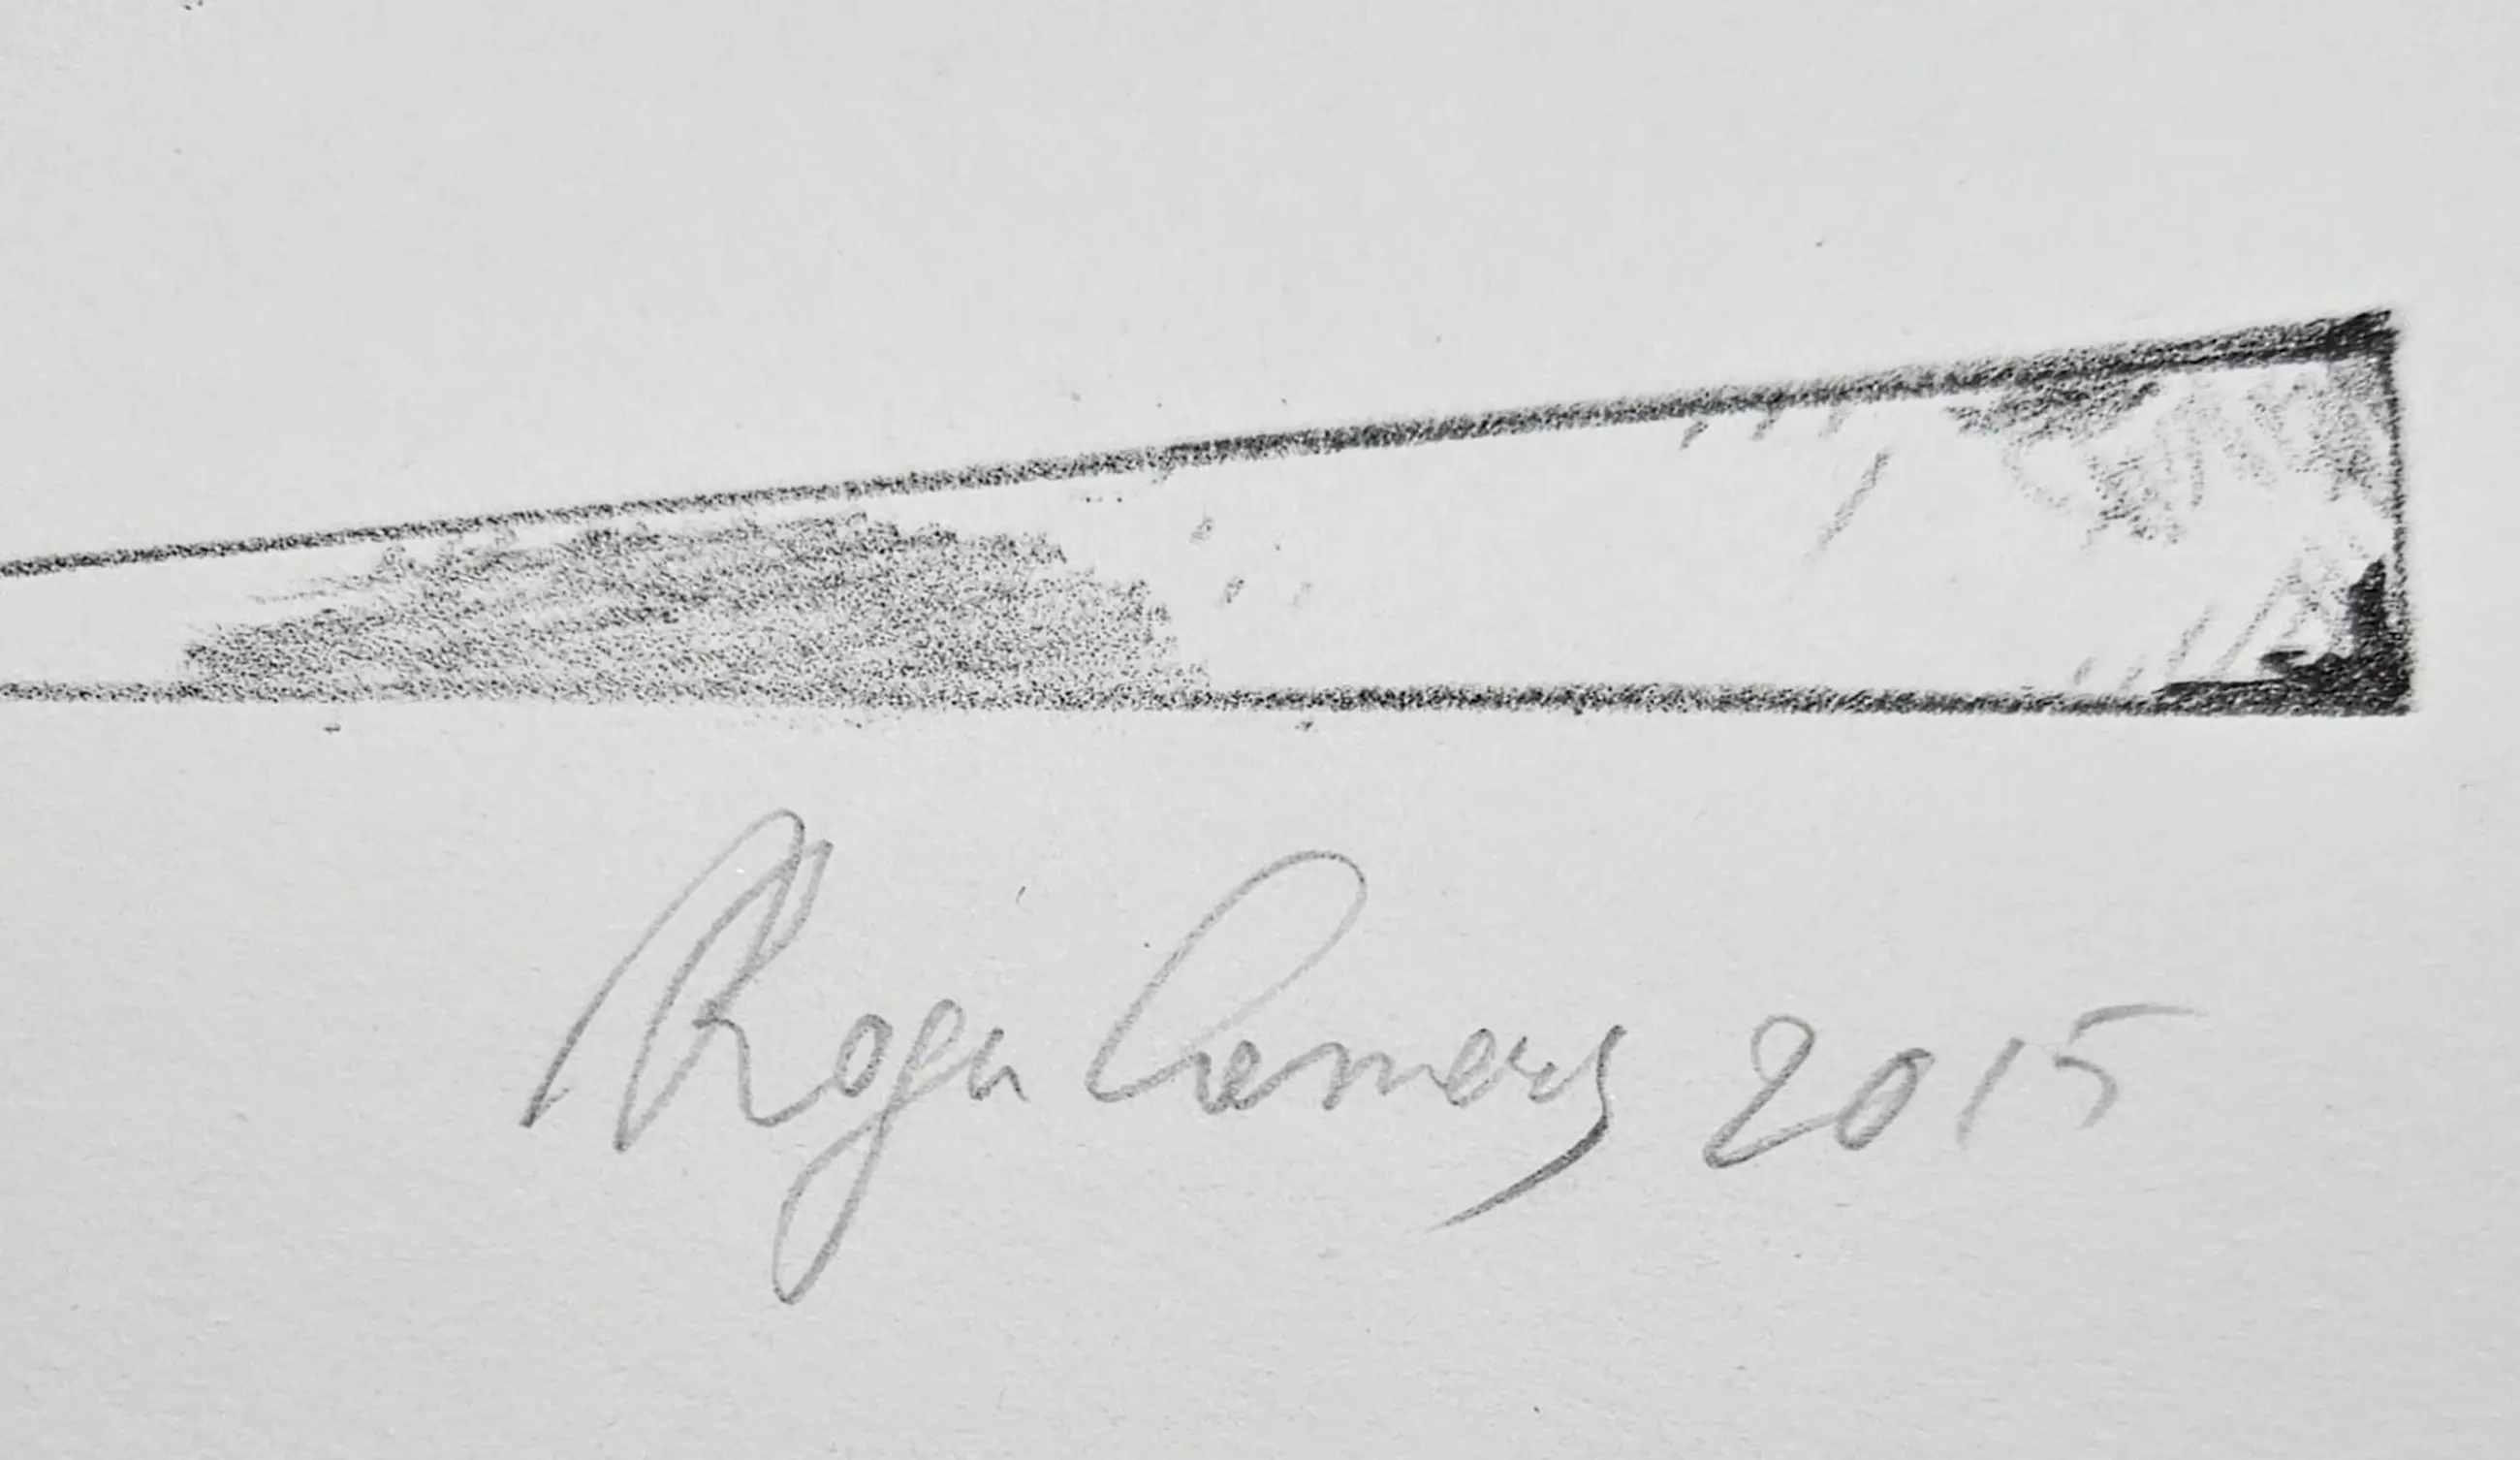 Roger Cremers 2015